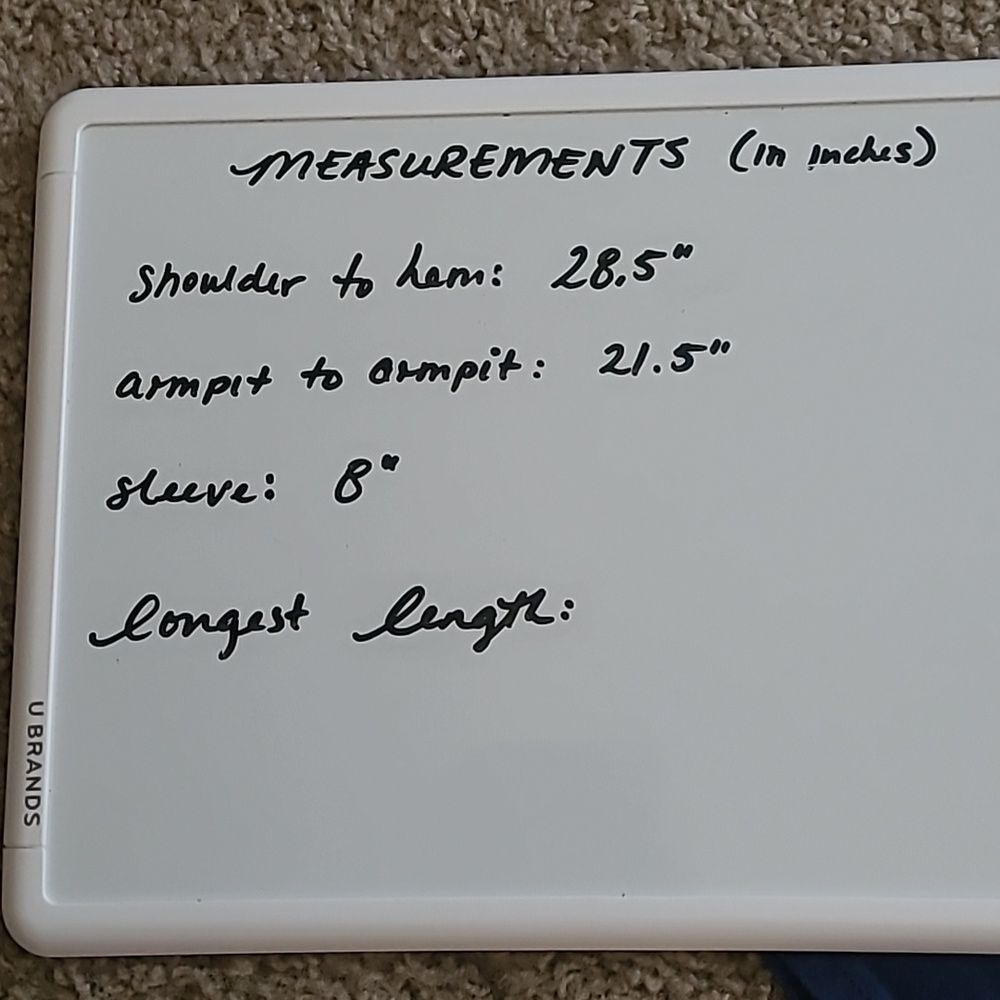 MEASUREMENTS (in inches)
shoulder to hem: 28.5"
armpit to armpit: 21.5"
sleeve: 8"
longest length:
U BRANDS